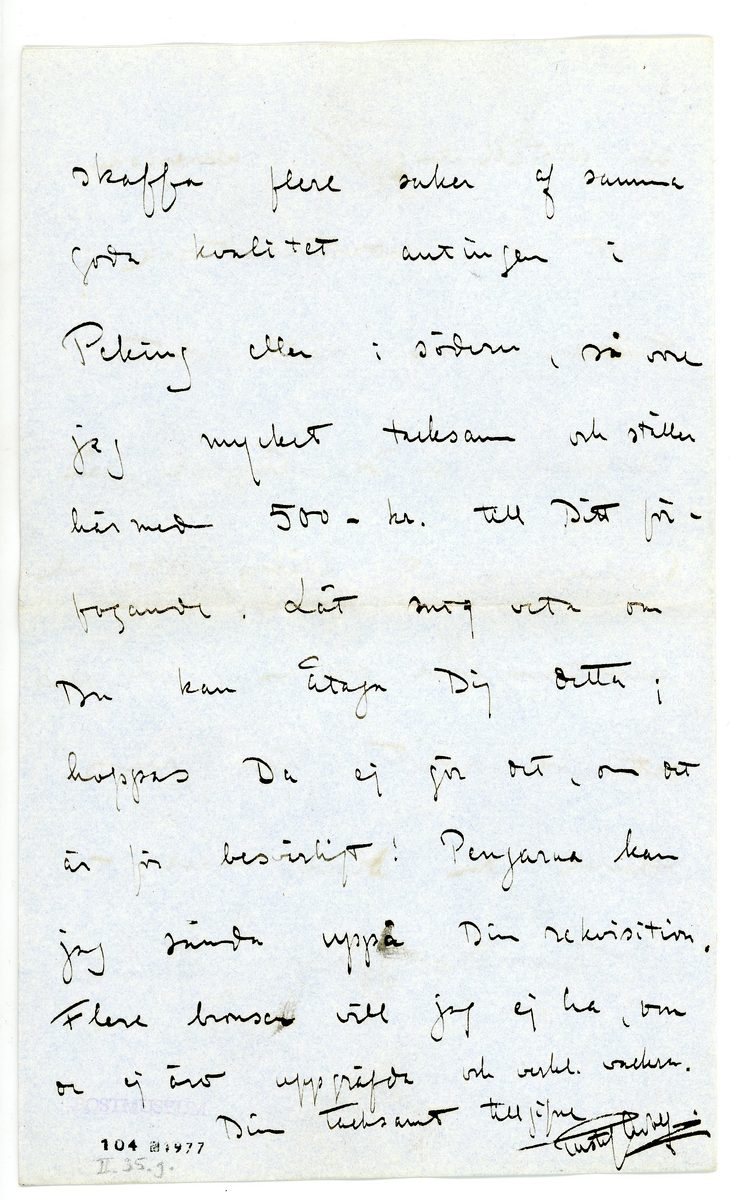 skaffa flere saker af samma
goda kvalitet antingen i
Peking eller i södern, så vore
jag mycket tacksam och ställer
härmed 500 - kr. till Ditt för-
fogande. Låt mig veta om
Du kan åtaga Dig detta;
hoppas Du ej gör det, om det
är för besvärligt! Pengarna kan
jag sända uppå Din rekvisition.
Flere bronser vill jag ej ha, om
de ej äro uppgräfda och verkl. vackra.
Din tacksamt tillgifne
Gustaf Adolf
104 1977
II.35.g.